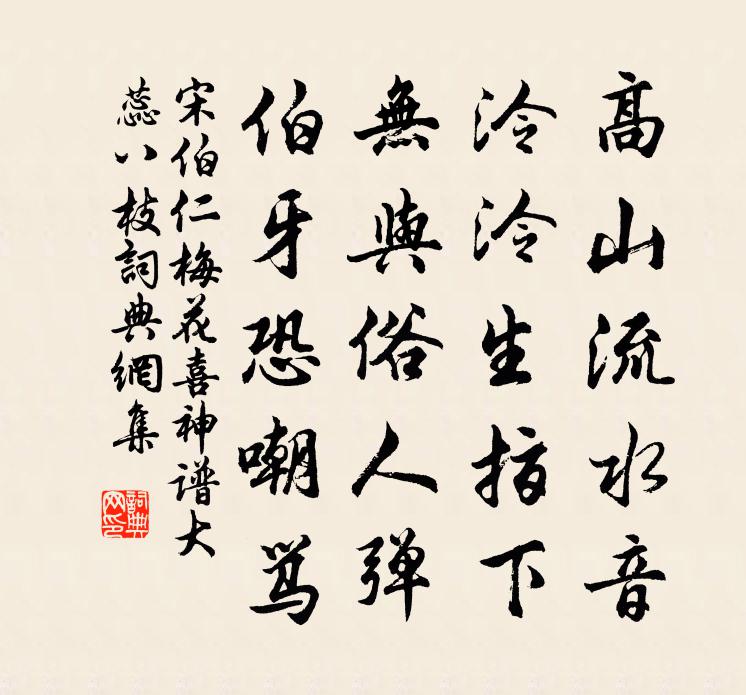 高山流水音
泠泠生指下
無與俗人弹
伯牙恐嘲骂
宋伯仁梅花喜神谱大
蕊八枝詞典網集
詞典网印